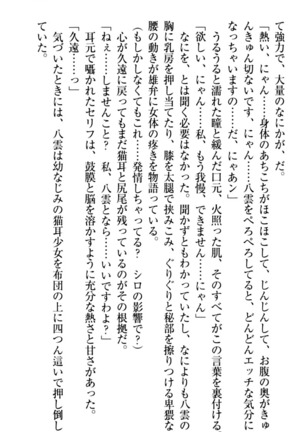 て強力で、大量のなにかが、だ。
「熱い、にゃん……身体のあちこちがほこほこして、じんじんして、お腹の奥がきゅ
んきゅん切ないです、にゃん……八雲をぺろぺろしてると、どんどんエッチな気分に
なっちゃいますの……だ、にゃアン」
うるうると濡れた瞳と緩んだ口元、火照った肌、そのすべてがこの言葉を裏付ける。
「欲しい、にゃん……私、もう我慢、できません……にゃん」
なにを、とは聞く必要はなかった。聞かずともわかっていたし、なによりも八雲の
胸に乳房を押し当てたり、膝を太腿で挟みこみ、ぐりぐりと秘部を擦りつける卑猥な
腰の動きが雄弁に女体の疼きを物語っている。
（もしかしなくてもこれ……発情しちゃってる？　シロの影響で？）
心が久遠に戻ってもまだ猫耳と尻尾が残っているのがその根拠だ。
「ねぇ……しませんこと？　私、八雲となら……いいですわよ？」
耳元で囁かれたセリフは、鼓膜と脳を溶かすように充分な熱さと甘さがあった。
「久遠……っ」
気づいたときには、八雲は幼なじみの猫耳少女を布団の上に四つん這いで押し倒し
ていた。